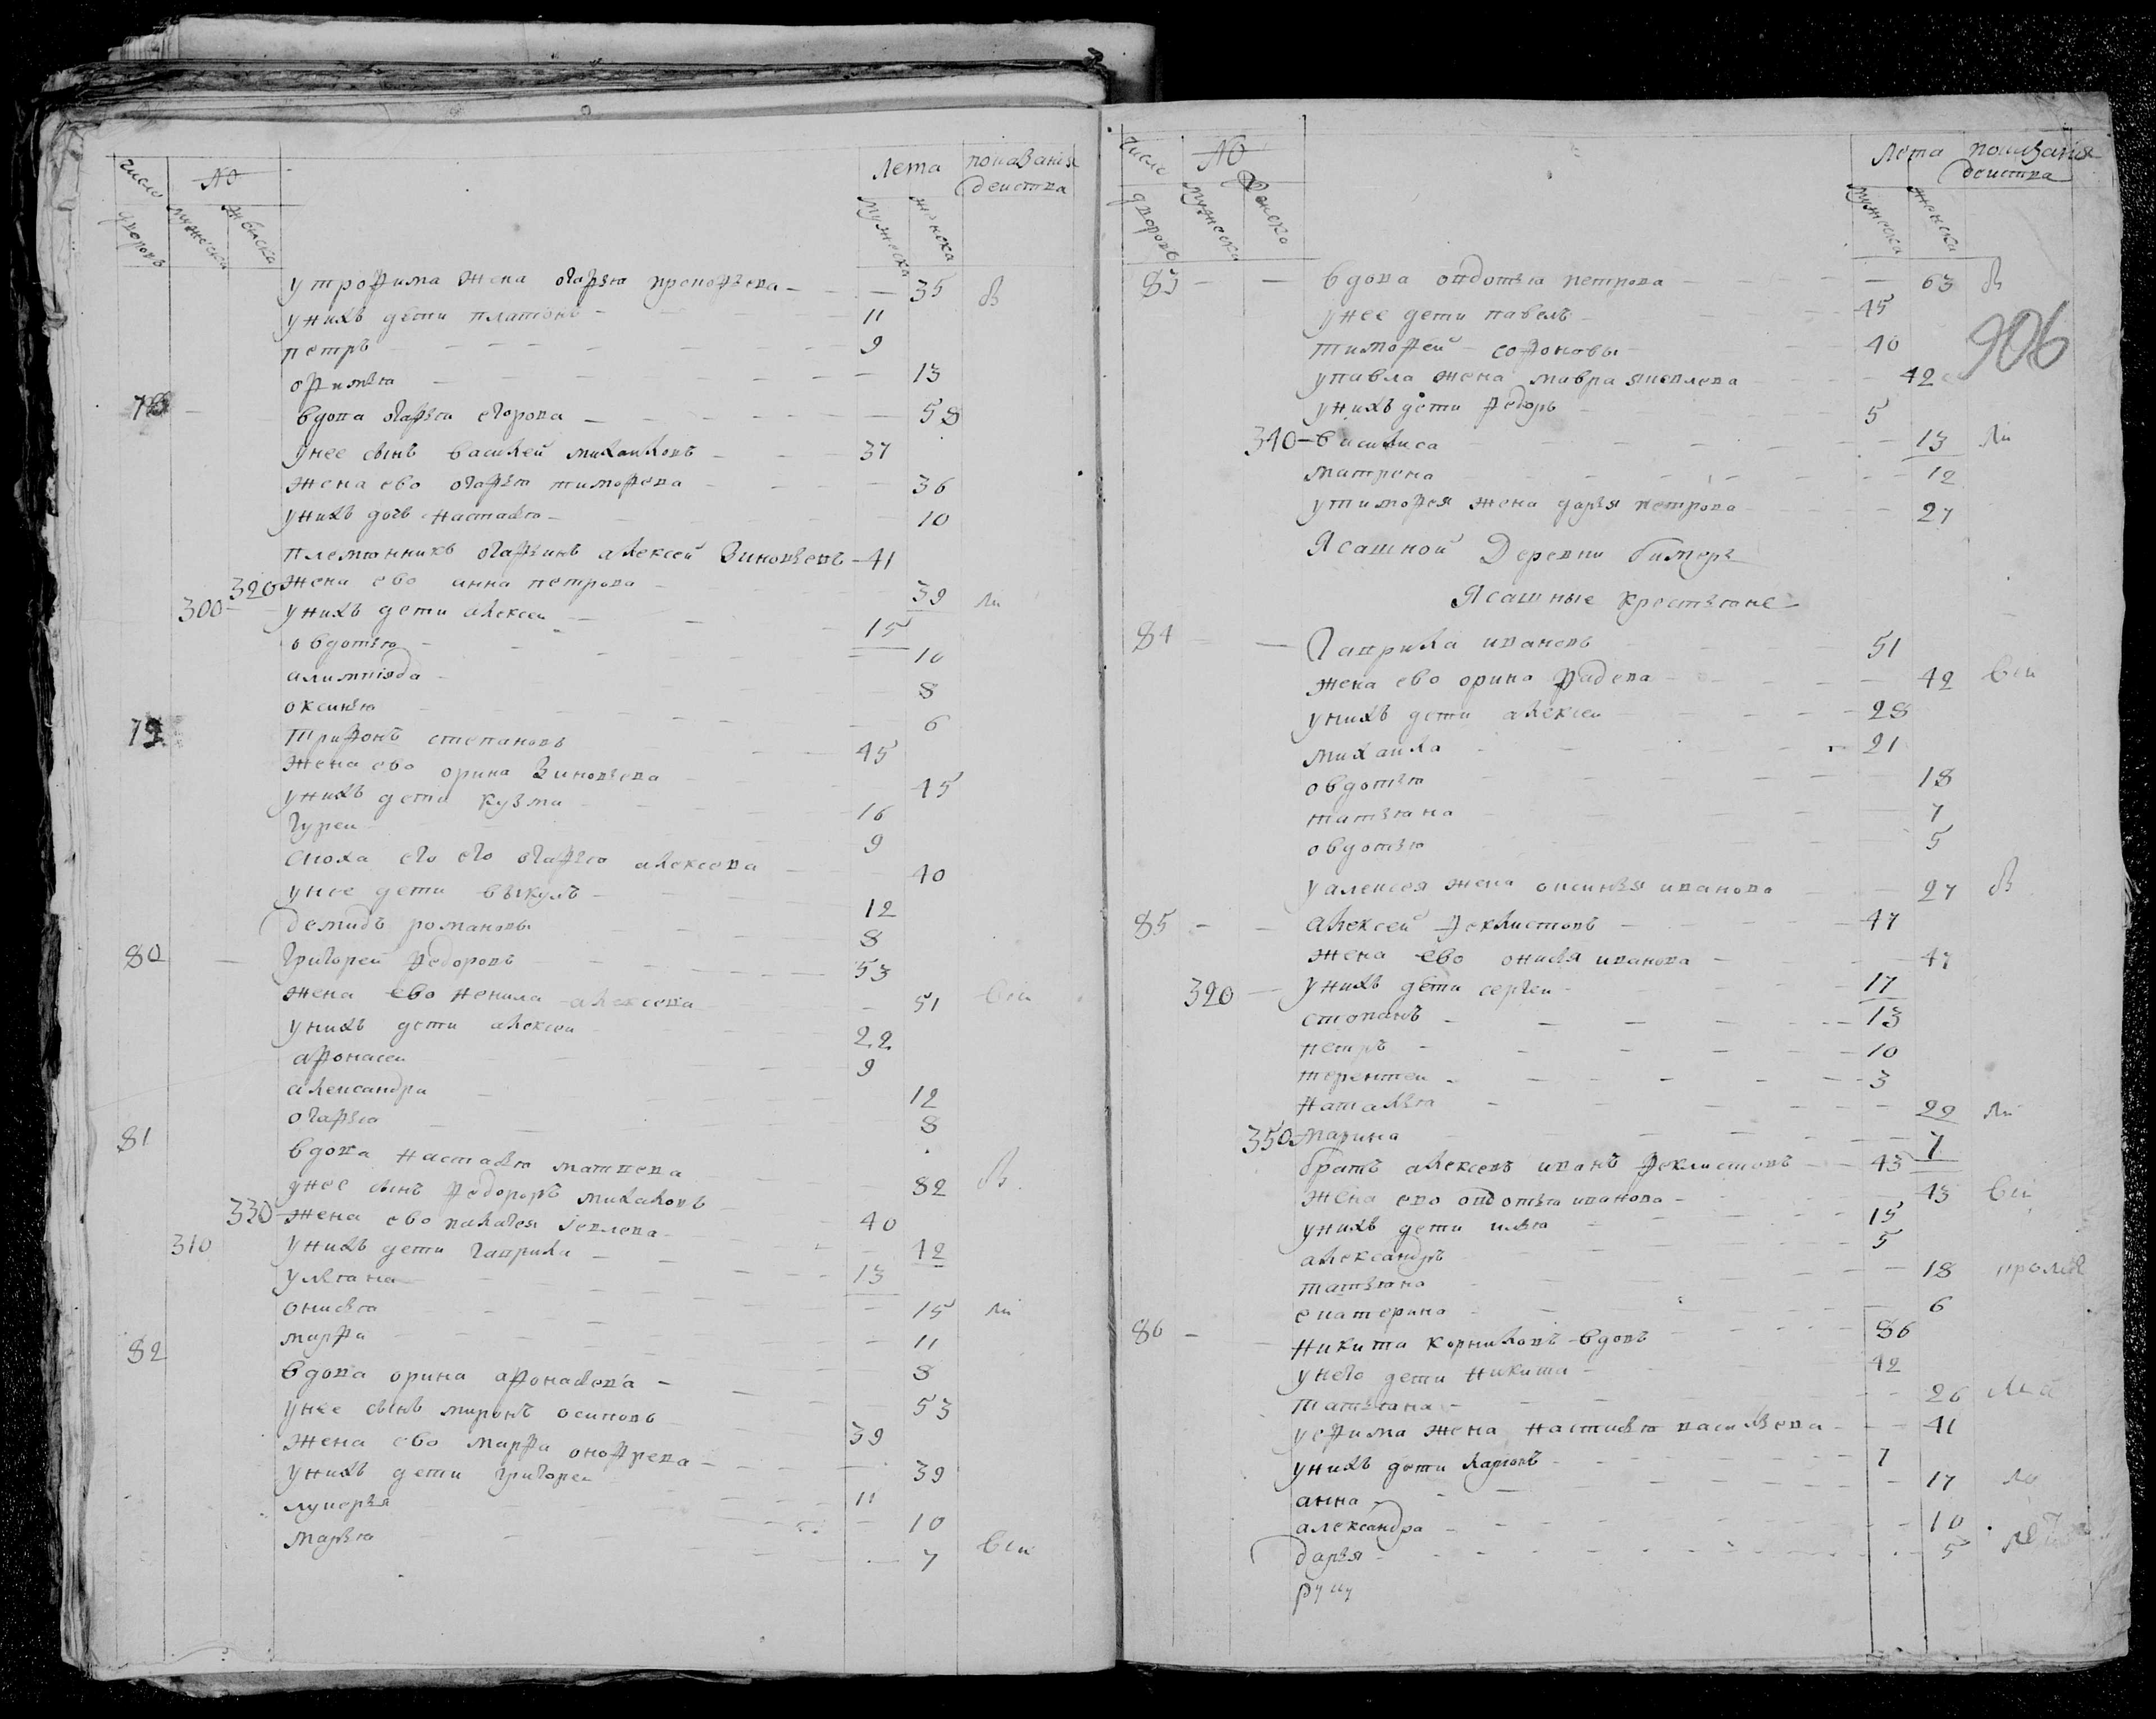 число дворовъ № мужеска женска Лета мужеска женска показаниѣ деиства
у трофима жена огафья прокофьева 35
у нихъ дети платонъ 11
петръ 9
офимья 13
78 вдова огафья егорова 58
у нее сынъ василей михаиловъ 37
жена ево огафья тимофева 36
у нихъ дочь настасья 10
племянникъ огафьинъ алексей Зиновьевъ 41
320 жена ево анна петрова 39
300 у нихъ дети алексеи 15
овдотья 10
алимпіяда 8
оксинья 6
79 трифонъ степановъ 45
жена ево орина Зиновьева 45
у нихъ дети кузма 16
гуреи 9
сноха его огафья алексева 40
у нее дети викулъ 12
демидъ романовы 8
80 григорей федоровъ 53
жена ево ненила алексева 51
у нихъ дети алексеи 22
афонасеи 9
александра 12
огафья 8
81 вдова настасья матвева 82
у нее сынъ федоръ михаловъ 40
330 жена ево палагея іевлева 42
310 у нихъ дети гаврила 13
ульяна 15
онисья 11
марфа 8
82 вдова орина афонасева 53
у нее сынъ миронъ осиповъ 39
жена ево марфа онофрева 39
у нихъ дети григореи 11
лукерья 10
марья 7
число дворовъ № мужеска женска Лета мужеска женска показания деиства
906
83 вдова овдотья петрова 63
у нее дети павелъ 45
тимофей софоновы 40
у павла жена мавра яковлева 42
у нихъ дети федоръ 5
340 василиса 13
матрена 12
у тимофея жена дарья петрова 27
Ясашной Деревни бимеръ
Ясашные крестьяне
84 Гаврила ивановъ 51
жена ево орина фадева 42
у нихъ дети алексеи 28
михаила 21
овдотья 18
татьяна 7
овдотья 5
у алексея жена оксинья иванова 27
85 алексей феклистовъ 47
жена ево онисья иванова 47
320 у нихъ дети сергеи 17
степанъ 13
петръ 10
терентеи 3
наталья 22
350 марина 7
братъ алексевъ иванъ феклистовъ 43
жена ево овдотья иванова 43
у нихъ дети илья 15
александръ 5
татьяна 18
екатерина 6
86 никита корниловъ вдовъ 86
у него дети никита 42
татьяна 26
у ефима жена настасья васильева 41
у нихъ дети ларионъ 7
анна 17
александра 10
дарья 5
руку